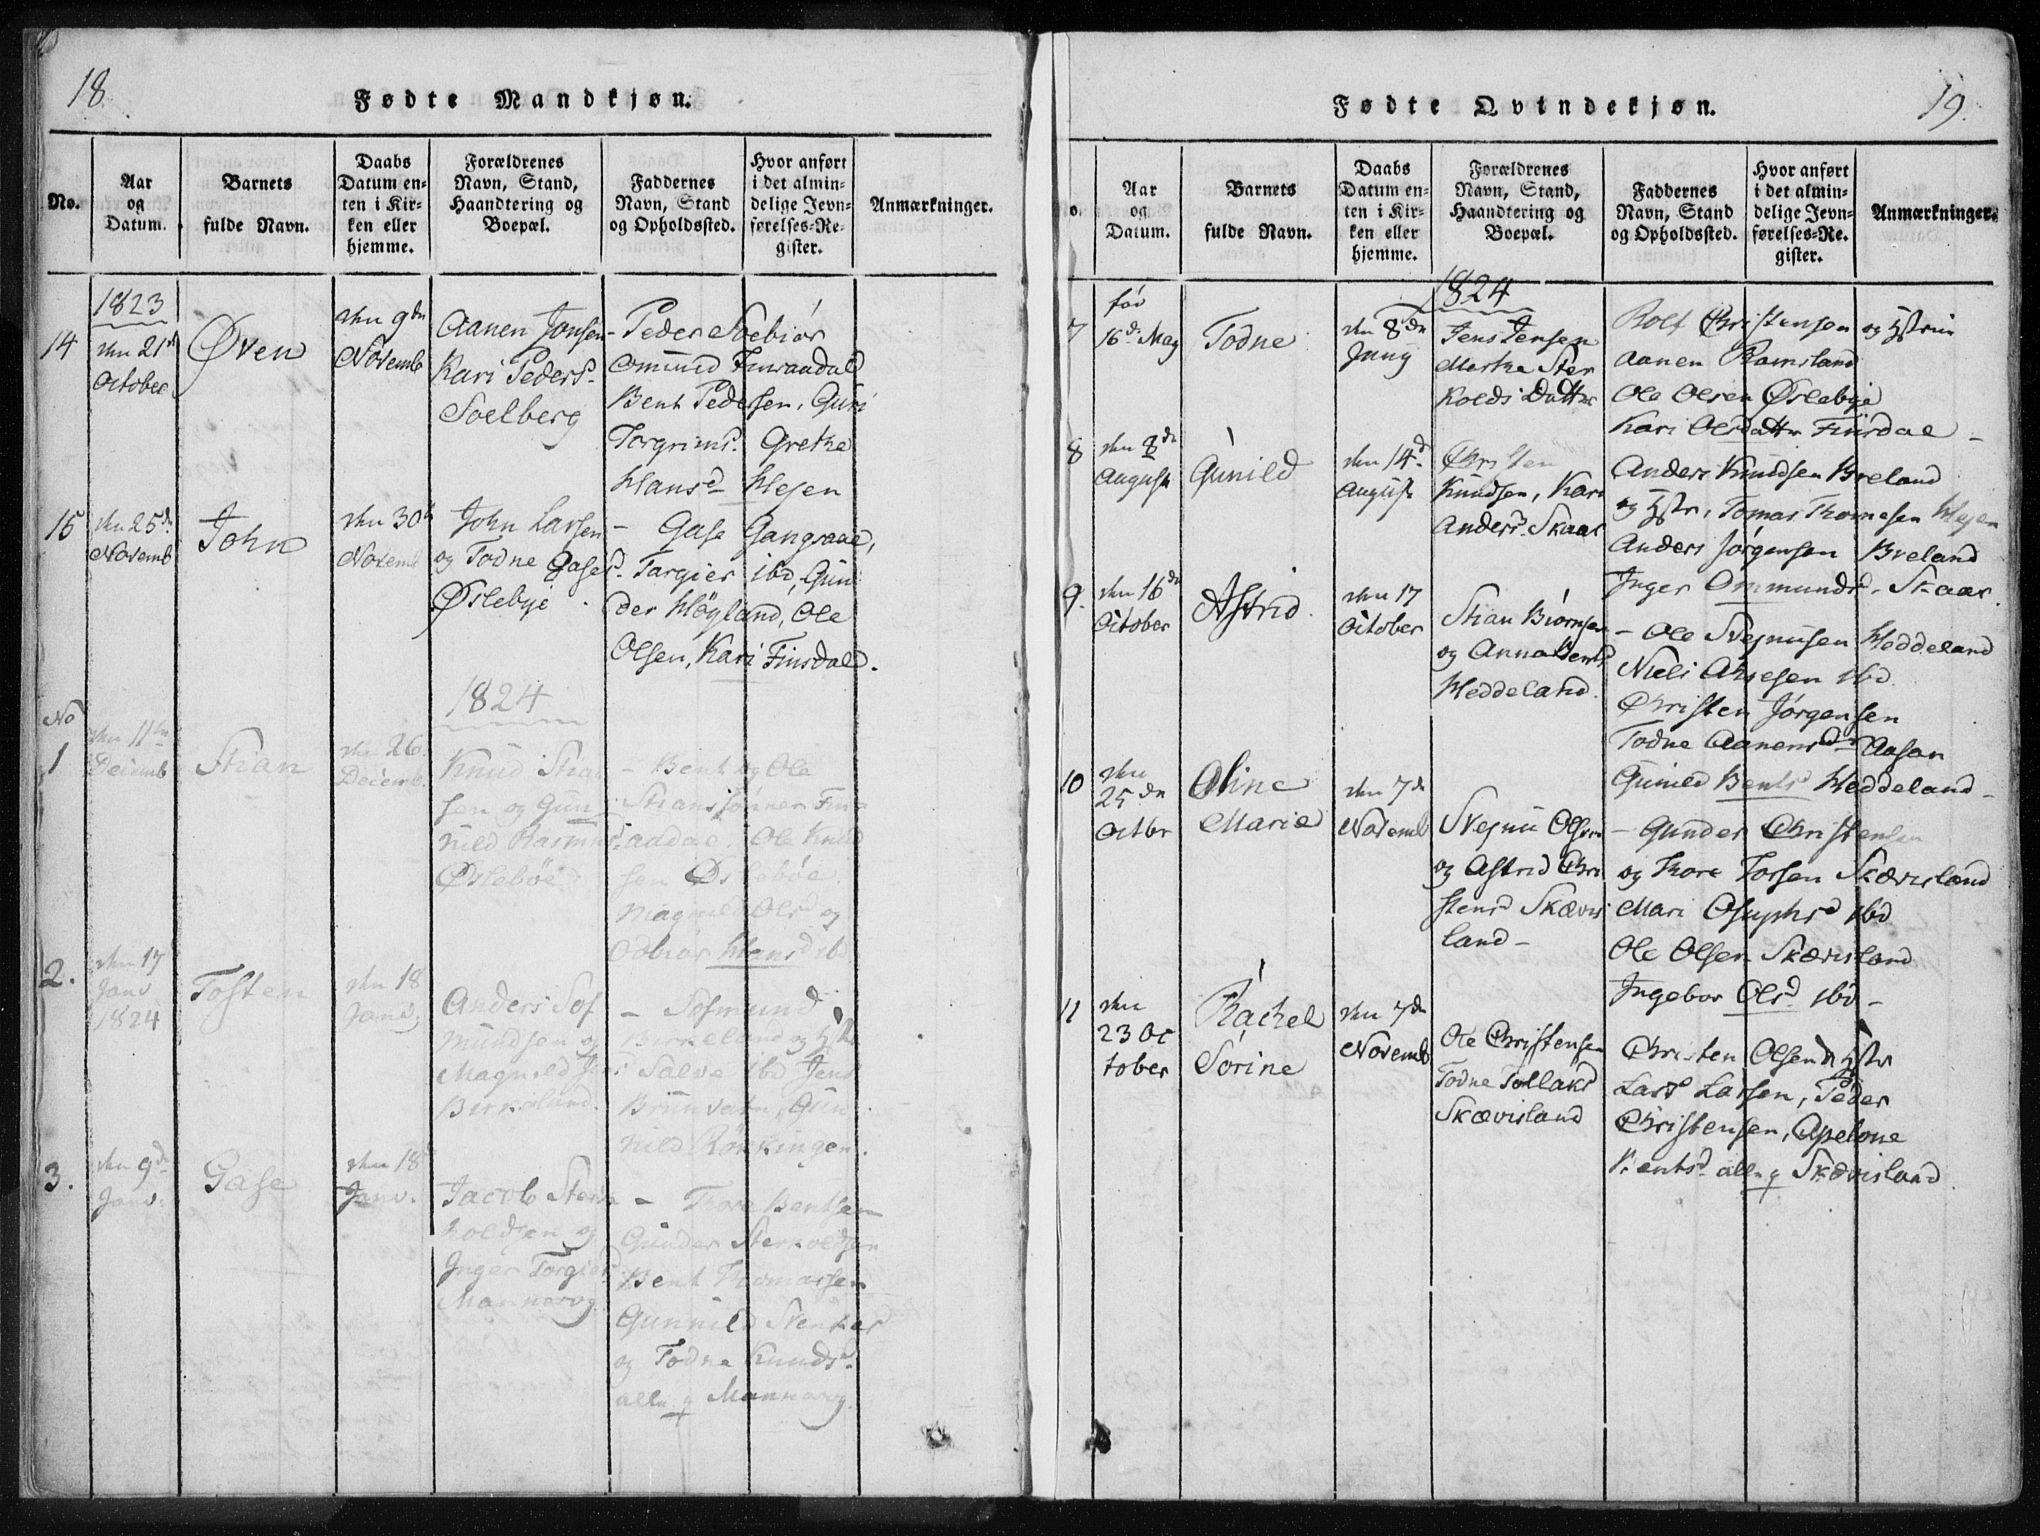 18.
Fødte Mandkjøn.
No.
Aar
og
Datum.
Barnets
fulde Navn.
Daabs
Datum en-
ten i Kir-
ken eller
hjemme.
Forældrenes
Navn, Stand,
Haandtering og
Boepæl.
Faddernes
Navn, Stand
og Opholdssted.
Hvor anført
i det almin-
delige Jevn-
førelses-Re-
gister.
Anmærkninger.
1823
14
den 21d
October
Øven
den 9de
Novemb
Aanen Jonsen
Kari Peders
Soelberg
- Peder
Omund Finsaadal
Bent Pedersen, Guri
Torgrimsd. Grethe
Hansd Hejen
15
den 25de
Novemb
John
den 30d
Novemb
John Larsen
og Todne Gases
Øslebye.
- Gase Gangsaae,
Targier ibd, Gun
der Høgland, Ole
Olsen, Kari Finsdald.
1824
No
1
den 11te
Decemb
Stian
den 26.
Decemb.
Knud Stian
sen og Gun
hild Rasmus
Øslebøe
- Bent og Ole
Stianssønner Fins
aadal. Ole Knud
sen Øslebøe
Magnild Olsd og
Odbiør Hansd ibd
2.
den 17
Janv
1824
Tosten
den 18
Janv,
Anders Sof
mundsen og
Magnild
Birkeland.
- Sofmund
Birkeland og
Salve ibd Jens
Brunvatn, Gun
hild Rønkingen.
3.
den 9de
Janv.
Gase
den 18
Janv.
Jacob Sterk
holdsen og
Inger Torgies
Mannarog
- Thore Bentsen
Gunder Sterkoldsen
Bent Thomassen
Gunnild
og Todne Knudsd.
alle Mannarog.
19.
Fødte Qvindekjøn.
o.
Aar
og
Datum.
Barnets
fulde Navn.
Daabs
Datum en-
ten i Kir-
ken eller
hjemme.
Forældrenes
Navn, Stand,
Haandtering og
Boepæl.
Faddernes
Navn, Stand
og Opholdssted.
Hvor anført
i det almin-
delige Jevn-
førelses-Re-
gister.
Anmærkninger.
1824
7
16de May
Todne
den 8de
Juny
Jens Jensen
Merthe Ster
kolds Datter
Rolf Christensen og
Aanen Ramsland
Ole Olsen Øslebye
Kari Olsdatter Finsdal -
8
den 8de
August
Gunild
den 14d.
August
Christen
Knudsen, Kari
Andersd. Skaar
Anders Knudsen Breland
og Hstr, Tomas Thomesen Hejen
Anders Jørgensen Breland
Inger Ommundsd. Skaar.
9.
den 16de
October
Astrid.
den 17
October
Stian Biørnsen
og Anna Bents
Heddeland.
- Ole Svejnusen Heddeland
Niels Aasesen ibd.
Christen Jørgensen
Todne Aanensd Aasan
Gunild Bentsd Heddeland -
10
den
25de
Octbr
Oline
Marie
den 7de
Novemb
Svejnu Olsen
og Astrid Chri
stensd Skævis
land -
- Gunder Christensen
og Thore Torsen Skævisland
Mari ibd
Ole Olsen Skævisland
Ingebor Olsd. ibd -
11
den
23 Oc
tober
Rachel
Sørine
den 7de
Novemb
Ole Christensen
Todne Tollaks
Skævisland
Christen Olsen Hstr
Lars Larsen, Peder
Christensen, Apelone
Bentsd alle Skævisland